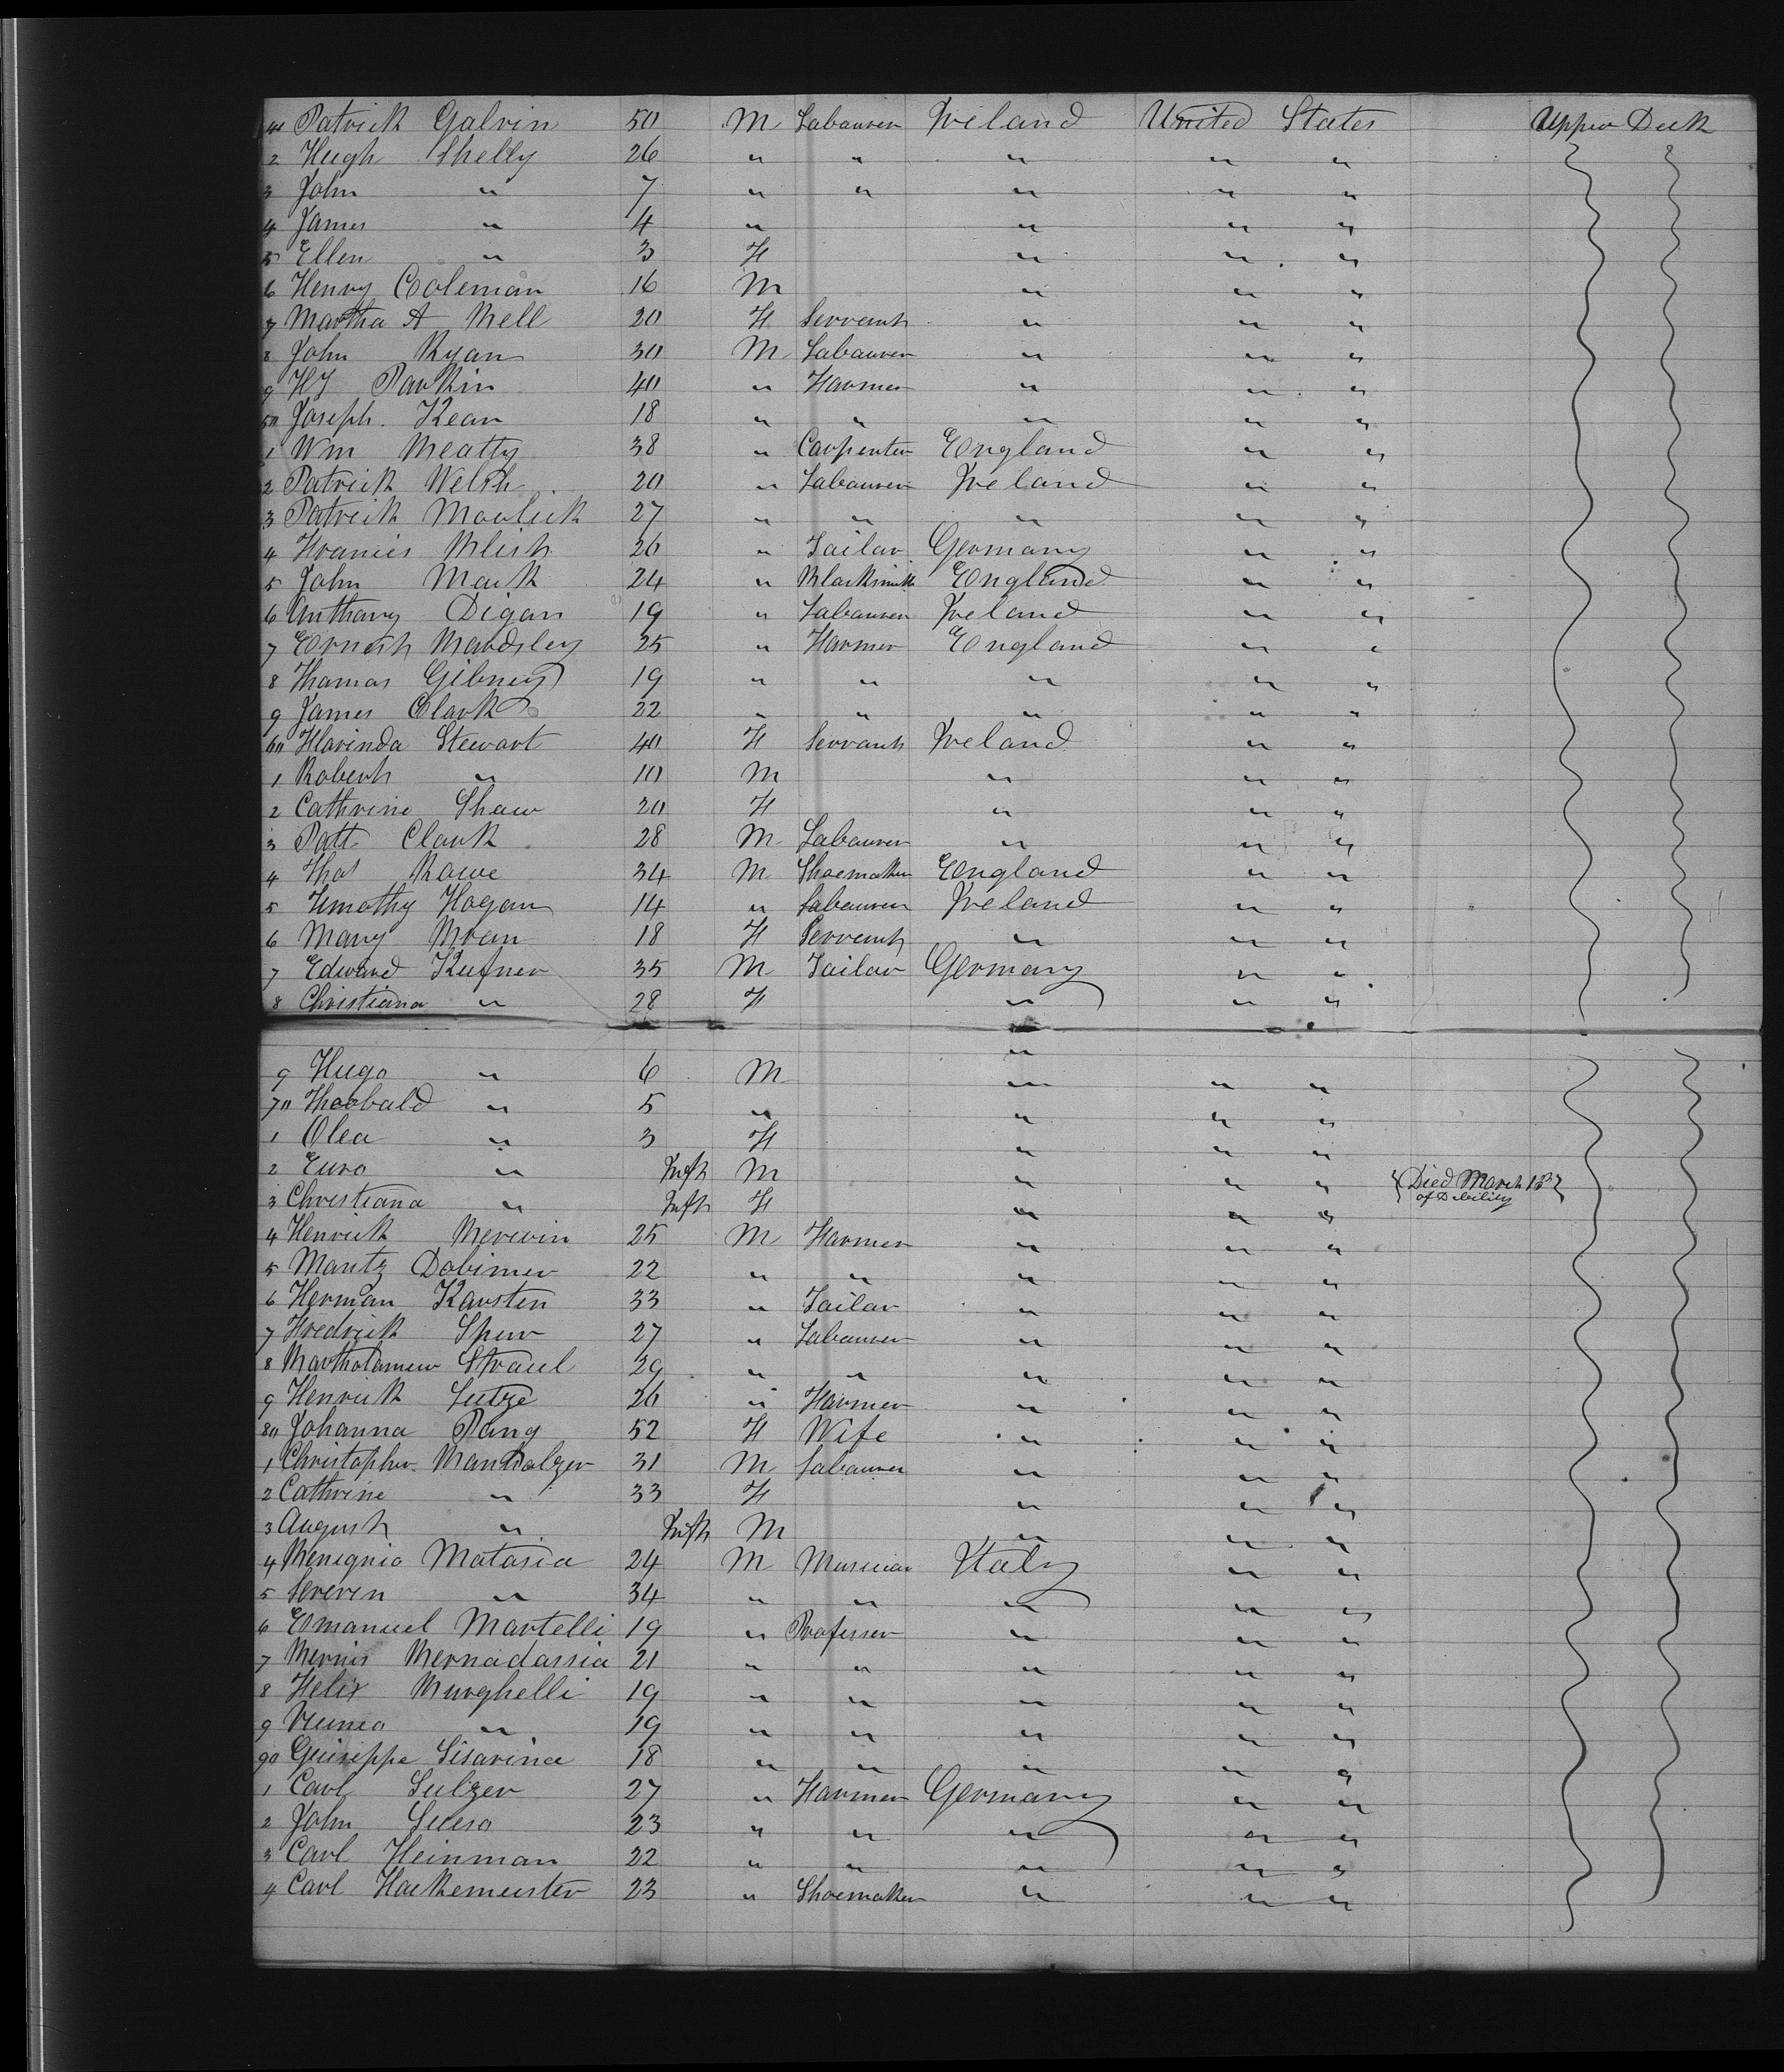 41 Patrick Galvin 50 M Labourer Ireland United States Upper Deck
2 Hugh Shelly 26 " " " " "
3 John " 7 " " " " "
4 James " 4 " " " "
5 Ellen " 3 F " " "
6 Henry Coleman 16 M " " "
7 Martha A Bell 20 F Servant " " "
8 John Ryan 30 M Labourer " " "
9 HJ Parkin 40 " Farmer " " "
50 Joseph Kean 18 " " " " "
1 Wm Beatty 38 " Carpenter England " "
2 Patrick Welsh 20 " Labourer Ireland " "
3 Patrick 27 " " " " "
4 Francis 26 " Tailor Germany " "
5 John Mack 24 " Blacksmith England " "
6 Anthony Digan 19 " Labourer Ireland " "
7 Ernest Bardsley 25 " Farmer England " "
8 Thomas Gibney 19 " " " " "
9 James Clark 22 " " " " "
60 Florinda Stewart 40 F Servant Ireland " "
1 Robert " 10 M " " "
2 Cathrine Shaw 20 F " " "
3 Patt Clark 28 M Labourer " " "
4 Thos Rowe 34 M Shoemaker England " "
5 Timothy Hogan 14 " Labourer Ireland " "
6 Mary 18 F Servant " " "
7 Edward Kufner 35 M Tailor Germany " "
8 Christiana " 28 F " " "
"
9 Hugo " 6 M " " "
70 Theobald " 5 " " " "
1 Olea " 3 F " " "
2 Euro " Inft M " " " Died March 13th
of Debility
3 Christiana " Inft F " " "
4 Henrick 25 M Farmer " " "
5 22 " " " " "
6 Herman Karsten 33 " Tailor " " "
7 Fredrick 27 " Labourer " " "
8 Bartholamew Straul 29 " " " " "
9 Henrick Lutze 26 " Farmer " " "
80 Johanna Pang 52 F Wife " " "
1 Christopher 31 M Labourer " " "
2 Cathrine " 33 F " " "
3 August " Inft M " " "
4 Benignio Matasia 24 M Musician Italy " "
5 Severin " 34 " " " " "
6 Emanuel Martelli 19 " Professer " " "
7 Bernadassia 21 " " " " "
8 Felix Murghelli 19 " " " " "
9 " 19 " " " " "
90 Guiseppe Sisarina 18 " " " " "
1 Carl Sulzer 27 " Farmer Germany " "
2 John 23 " " " " "
3 Carl Heinman 22 " " " " "
4 Carl Hackemeister 23 " Shoemaker " " "